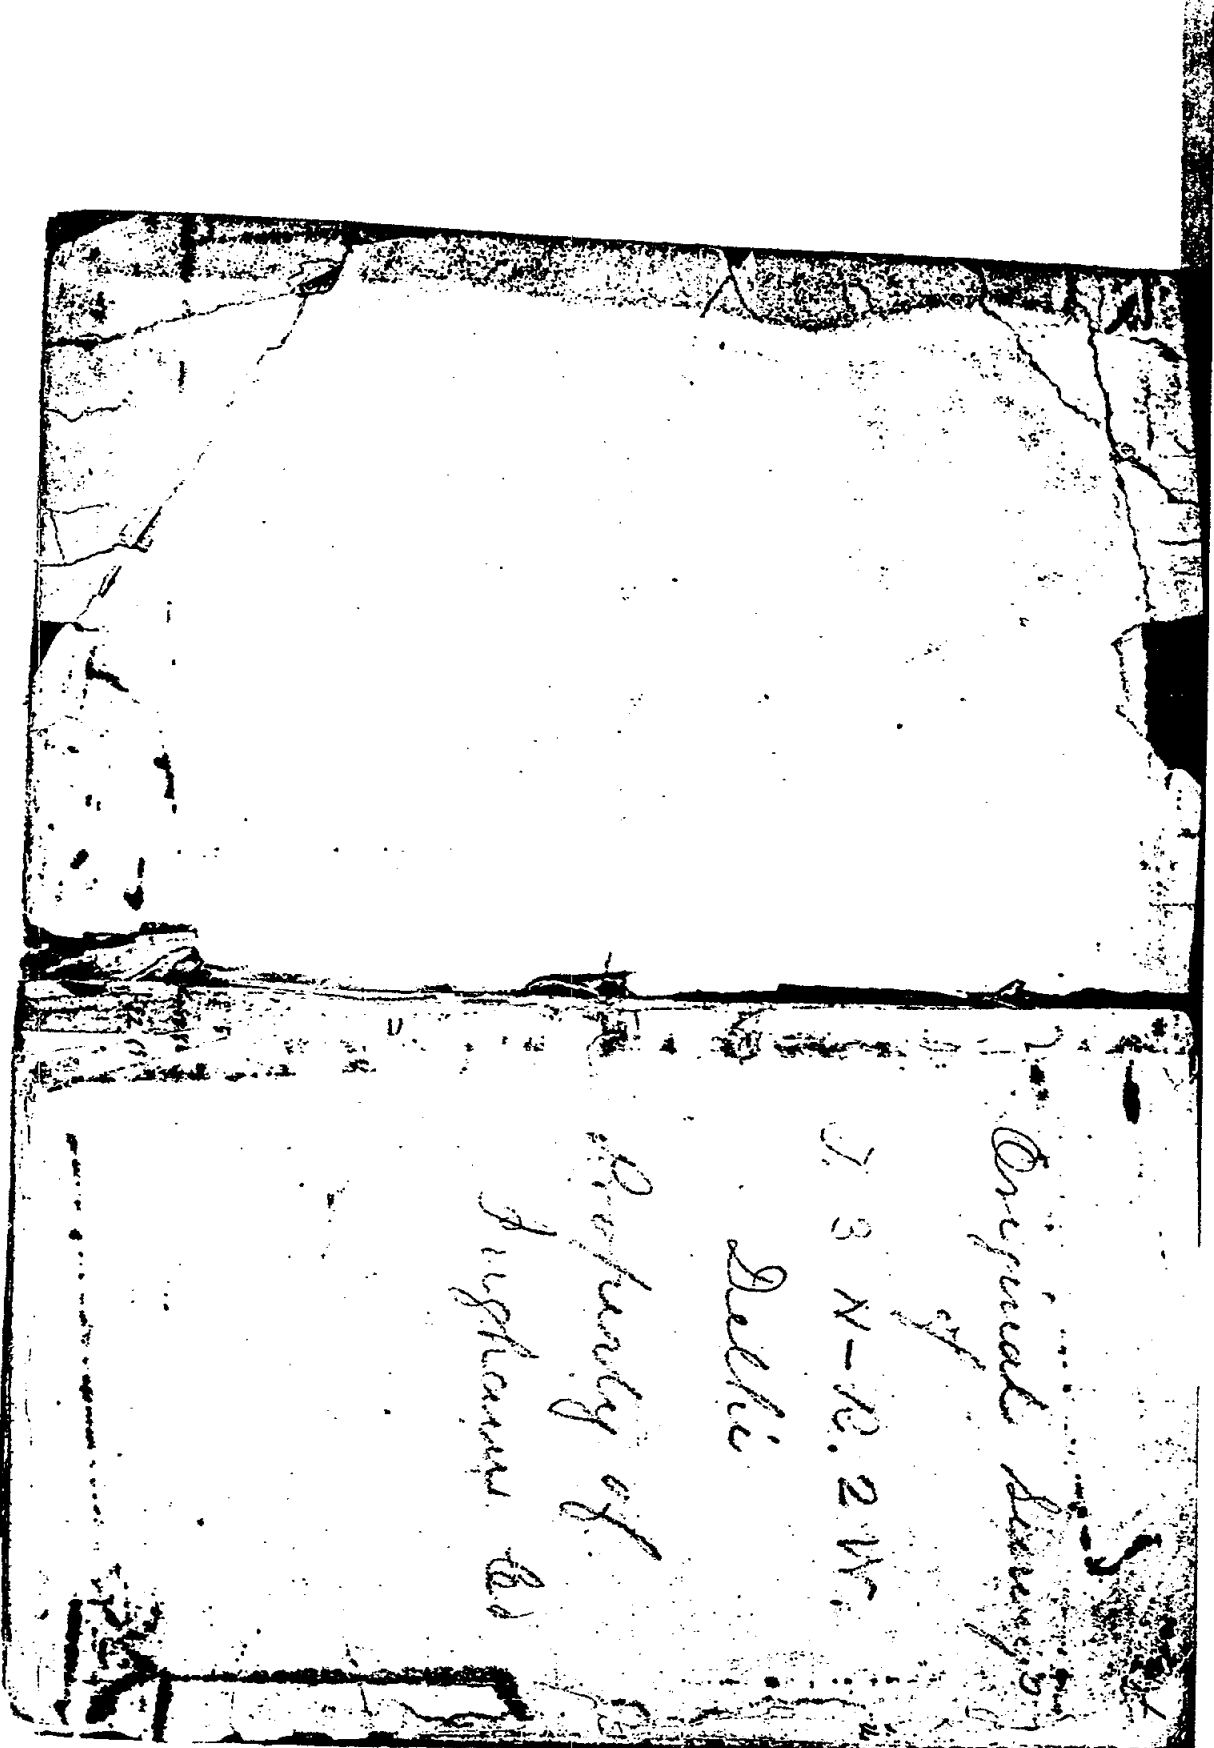 Original Surveys
of
T. 3 N-R. 2 W.
Delhi
Property of
Ingham Co